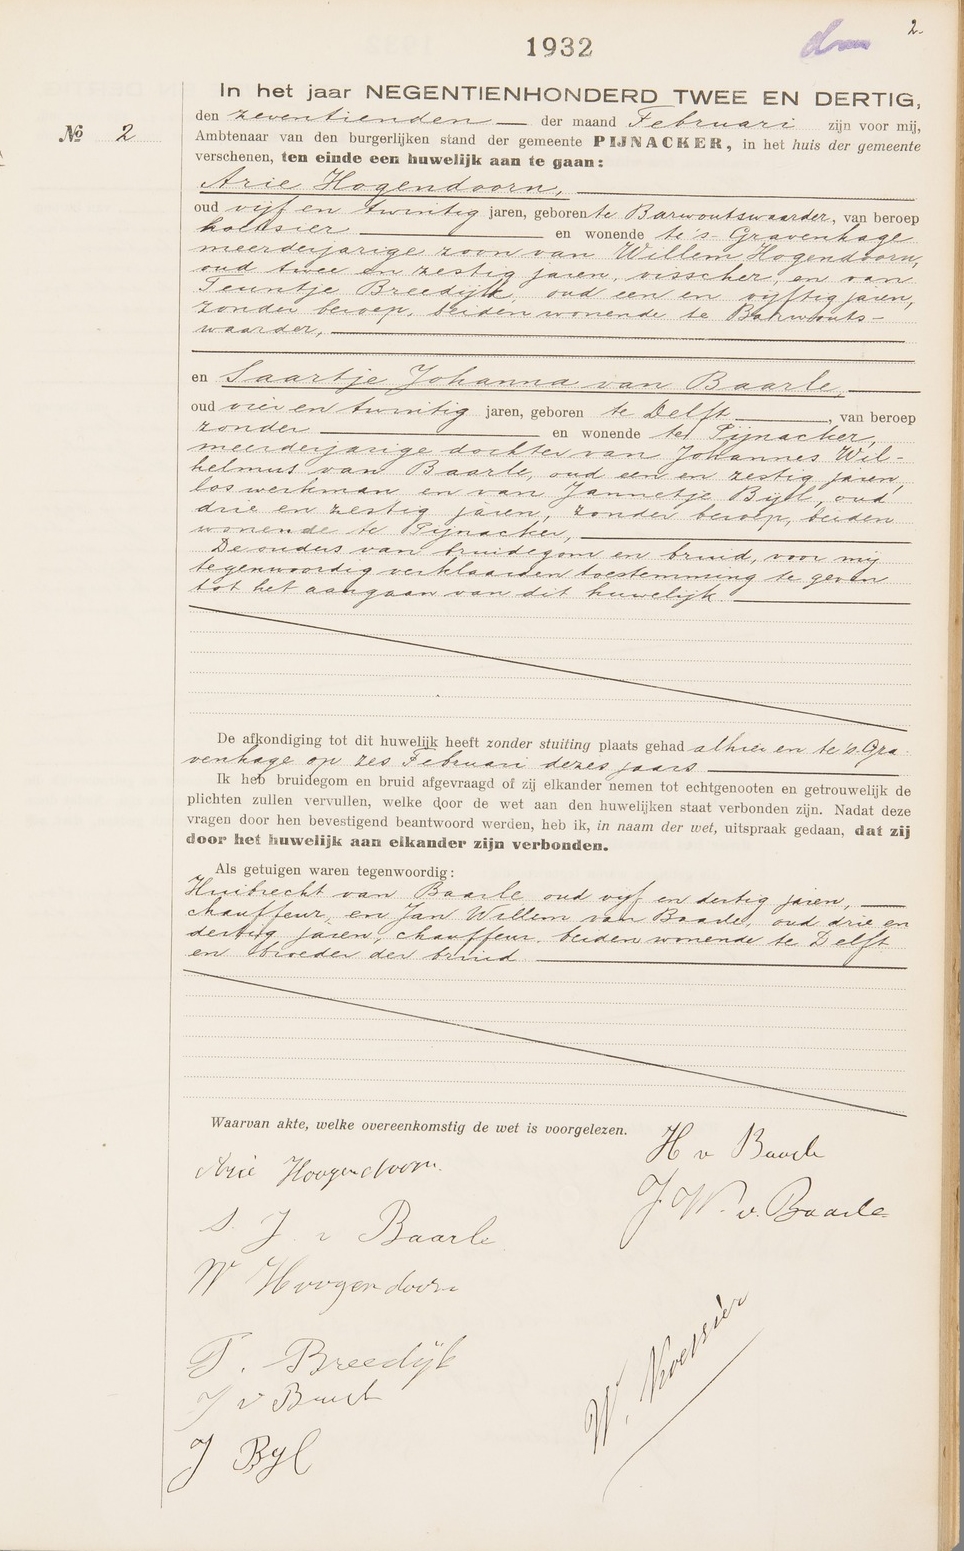 2.
1932
In het jaar NEGENTIENHONDERD TWEE EN DERTIG,
den zeventienden der maand Februari zijn voor mij,
No 2
Ambtenaar van den burgerlijken stand der gemeente PIJNACKER, in het huis der gemeente
verschenen, ten einde een huwelijk aan te gaan:
Arie Hogendoorn,
oud vijf en twintig jaren, geboren te Barwoutswaarder, van beroep
koetsier en wonende te 's-Gravenhage
meerderjarige zoon van Willem Hogendoorn,
oud twee en zestig jaren, visscher, en van
Teuntje Breedijk, oud een en vijftig jaren,
zonder beroep, beiden wonende te Barwouts-
waarder,
en Saartje Johanna van Baarle,
oud vier en twintig jaren, geboren te Delft, van beroep
zonder en wonende te Pijnacker,
meerderjarige dochter van Johannes Wil-
helmus van Baarle, oud een en zestig jaren,
los werkman en van Jannetje Bijl, oud
drie en zestig jaren, zonder beroep, beiden
wonende te Pijnacker,
De ouders van bruidegom en bruid, voor mij
tegenwoordig verklaarden toestemming te geven
tot het aangaan van dit huwelijk
De afkondiging tot dit huwelijk heeft zonder stuiting plaats gehad alhier en te 's Gra-
venhage op zes Februari dezes jaars
Ik heb bruidegom en bruid afgevraagd of zij elkander nemen tot echtgenooten en getrouwelijk de
plichten zullen vervullen, welke door de wet aan den huwelijken staat verbonden zijn. Nadat deze
vragen door hen bevestigend beantwoord werden, heb ik, in naam der wet, uitspraak gedaan, dat zij
door het huwelijk aan elkander zijn verbonden.
Als getuigen waren tegenwoordig:
Huibrecht van Baarle oud vijf en dertig jaren,
chauffeur, en Jan Willem van Baarle, oud drie en
dertig jaren, chauffeur, beiden wonende te Delft
en broeder der bruid
Waarvan akte, welke overeenkomstig de wet is voorgelezen.
H v Baarle
Arie Hoogendoorn.
J. W. v. Baarle
S. J v Baarle
W Hoogendoorn
T. Breedijk
J v Baarle
J Byl